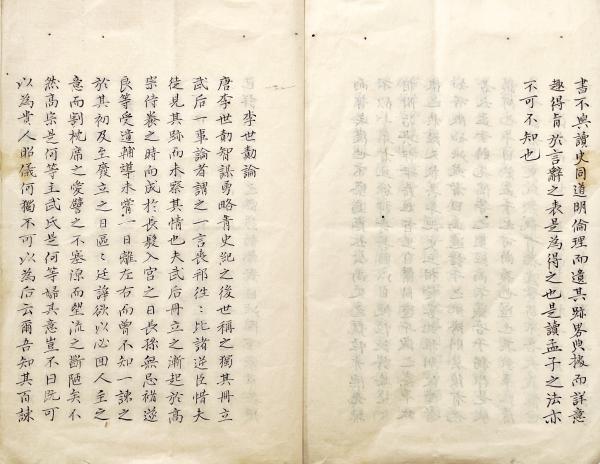 書不與讀史同道明倫理而遺其跡畧典據而詳意
趣得旨於言辭之表是為得之也是讀孟子之法亦
不可不知也
李世勣論
唐李世勣智謀勇略青史紀之後世稱之獨其冊立
武后一事論者謂之一言喪邦往〻比諸逆臣惜夫
徒見其跡而未察其情也夫武后冊立之漸起於高
宗侍養之時而成於長髮入宮之日長孫無忌褚遂
良等受遺輔導未嘗一日離左右而曾不知一諫之
於其初及至廢立之日區〻廷諍欲以必回人主之
意而割枕席之愛譬之不塞源而塑流之斷陋矣不
然高宗是何等主武氏是何等婦其意豈不曰既可
以為貴人昭儀何獨不可以為后云爾吾知其百諫